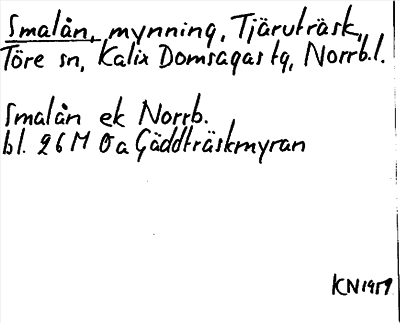 Smalån, mynning, Tjäruträsk,
Töre sn, Kalix Domsagas tg, Norrb.l.
Smalån ek Norrb.
bl. 26 M Oa Gäddträskmyran
KN 1959